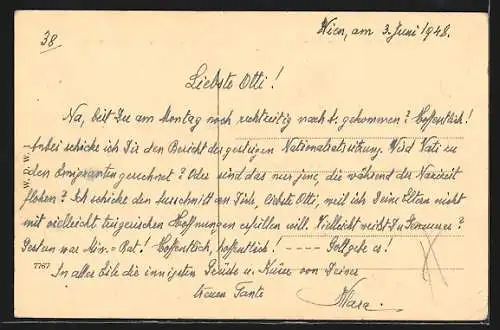 38
Wien, am 3. Juni 1948.
Liebste Otti!
Na, bist Du am Montag noch rechtzeitig nach h. gekommen? Hoffentlich!
Anbei schicke ich Dir den Bericht der gestrigen Nationalratssitzung. Wird Vati zu
den Emigranten gerechnet? Oder sind das nur jene, die während der Nazizeit
flohen? Ich schicke den Ausschnitt an Dich, liebste Otti, weil ich Deine Eltern nicht
mit vielleicht trügerischen Hoffnungen erfüllen will. Vielleicht weißt Du Genaueres?
Gestern war Min.-Rat! Hoffentlich, hoffentlich! ---- Gott gebe es!
In aller Eile die innigsten Grüße u. Küsse von Deiner
treuen Tante
Mara.
W. B. W.
7767